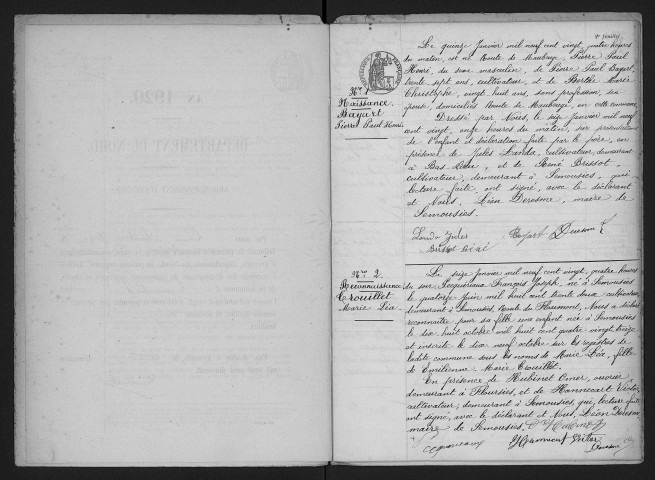 AN 1920.
DÉPARTEMENT DU NORD.
1er feuillet
Le quinze Janvier mil neuf cent vingt, quatre heures
du matin, est né Route de Maubeuge, Pierre Paul
Henri, du sexe masculin, de Pierre Paul Bayart,
trente sept ans, cultivateur, et de Berthe Marie
Christophe, vingt huit ans, sans profession, son
épouse, domiciliés Route de Maubeuge, en cette commune.
Dressé par Nous, le seize Janvier mil neuf
cent vingt, onze heures du matin, sur présentation
de l'enfant et déclaration faite par le père, en
présence de Jules Landa, cultivateur, demeurant
à Bas-Lieu, et de René Brissot,
cultivateur, demeurant à Semousies, qui,
lecture faite, ont signé, avec le déclarant
et Nous, Léon Deresme, maire de
Semousies.
No 1
Naissance
Bayart
Pierre Paul Henri
Landa Jules
Brissot René
Bayart
Deresme
No 2
Reconnaissance
Trouillet
Marie Léa.
Le seize Janvier mil neuf cent vingt, quatre heures
du soir, François Joseph, né à Semousies
le quatorze Juin mil huit cent trente deux, cultivateur,
demeurant à Semousies, Route de Flaumont, Nous a déclaré
reconnaître pour sa fille une enfant née à Semousies
le dix huit octobre mil huit cent quatre vingt treize
et inscrite le dix neuf octobre sur les registres de
ladite commune sous les noms de Marie Léa, fille
de Emilienne Marie Trouillet.
En présence de Hubinet Omer, ouvrier,
demeurant à Floursies, et de Hannecart Victor,
cultivateur, demeurant à Semousies, qui, lecture faite
ont signé, avec le déclarant et Nous, Léon Deresme
maire de Semousies.
Hannecart Victor
Deresme